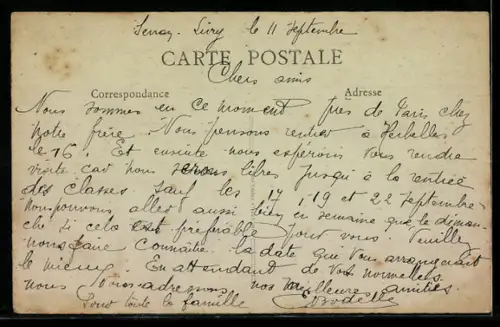 Sevran-Livry le 11 Septembre
CARTE POSTALE
Chers amis
Correspondance Adresse
Nous sommes en ce moment près de Paris chez
notre frère. Nous pensons rentrer à Herbelles
le 16. Et ensuite nous espérons vous rendre
visite car nous serons libres jusqu'à la rentrée
des classes. Sauf les 17 19 et 22 Septembre
nous pouvons aller aussi bien en semaine que le diman-
che si cela est préférable pour vous. Veuillez
nous faire connaitre la date que vous arrangerait
le mieux. En attendant de vos nouvelles
nous vous adressons nos meilleures amitiés
pour toute la famille